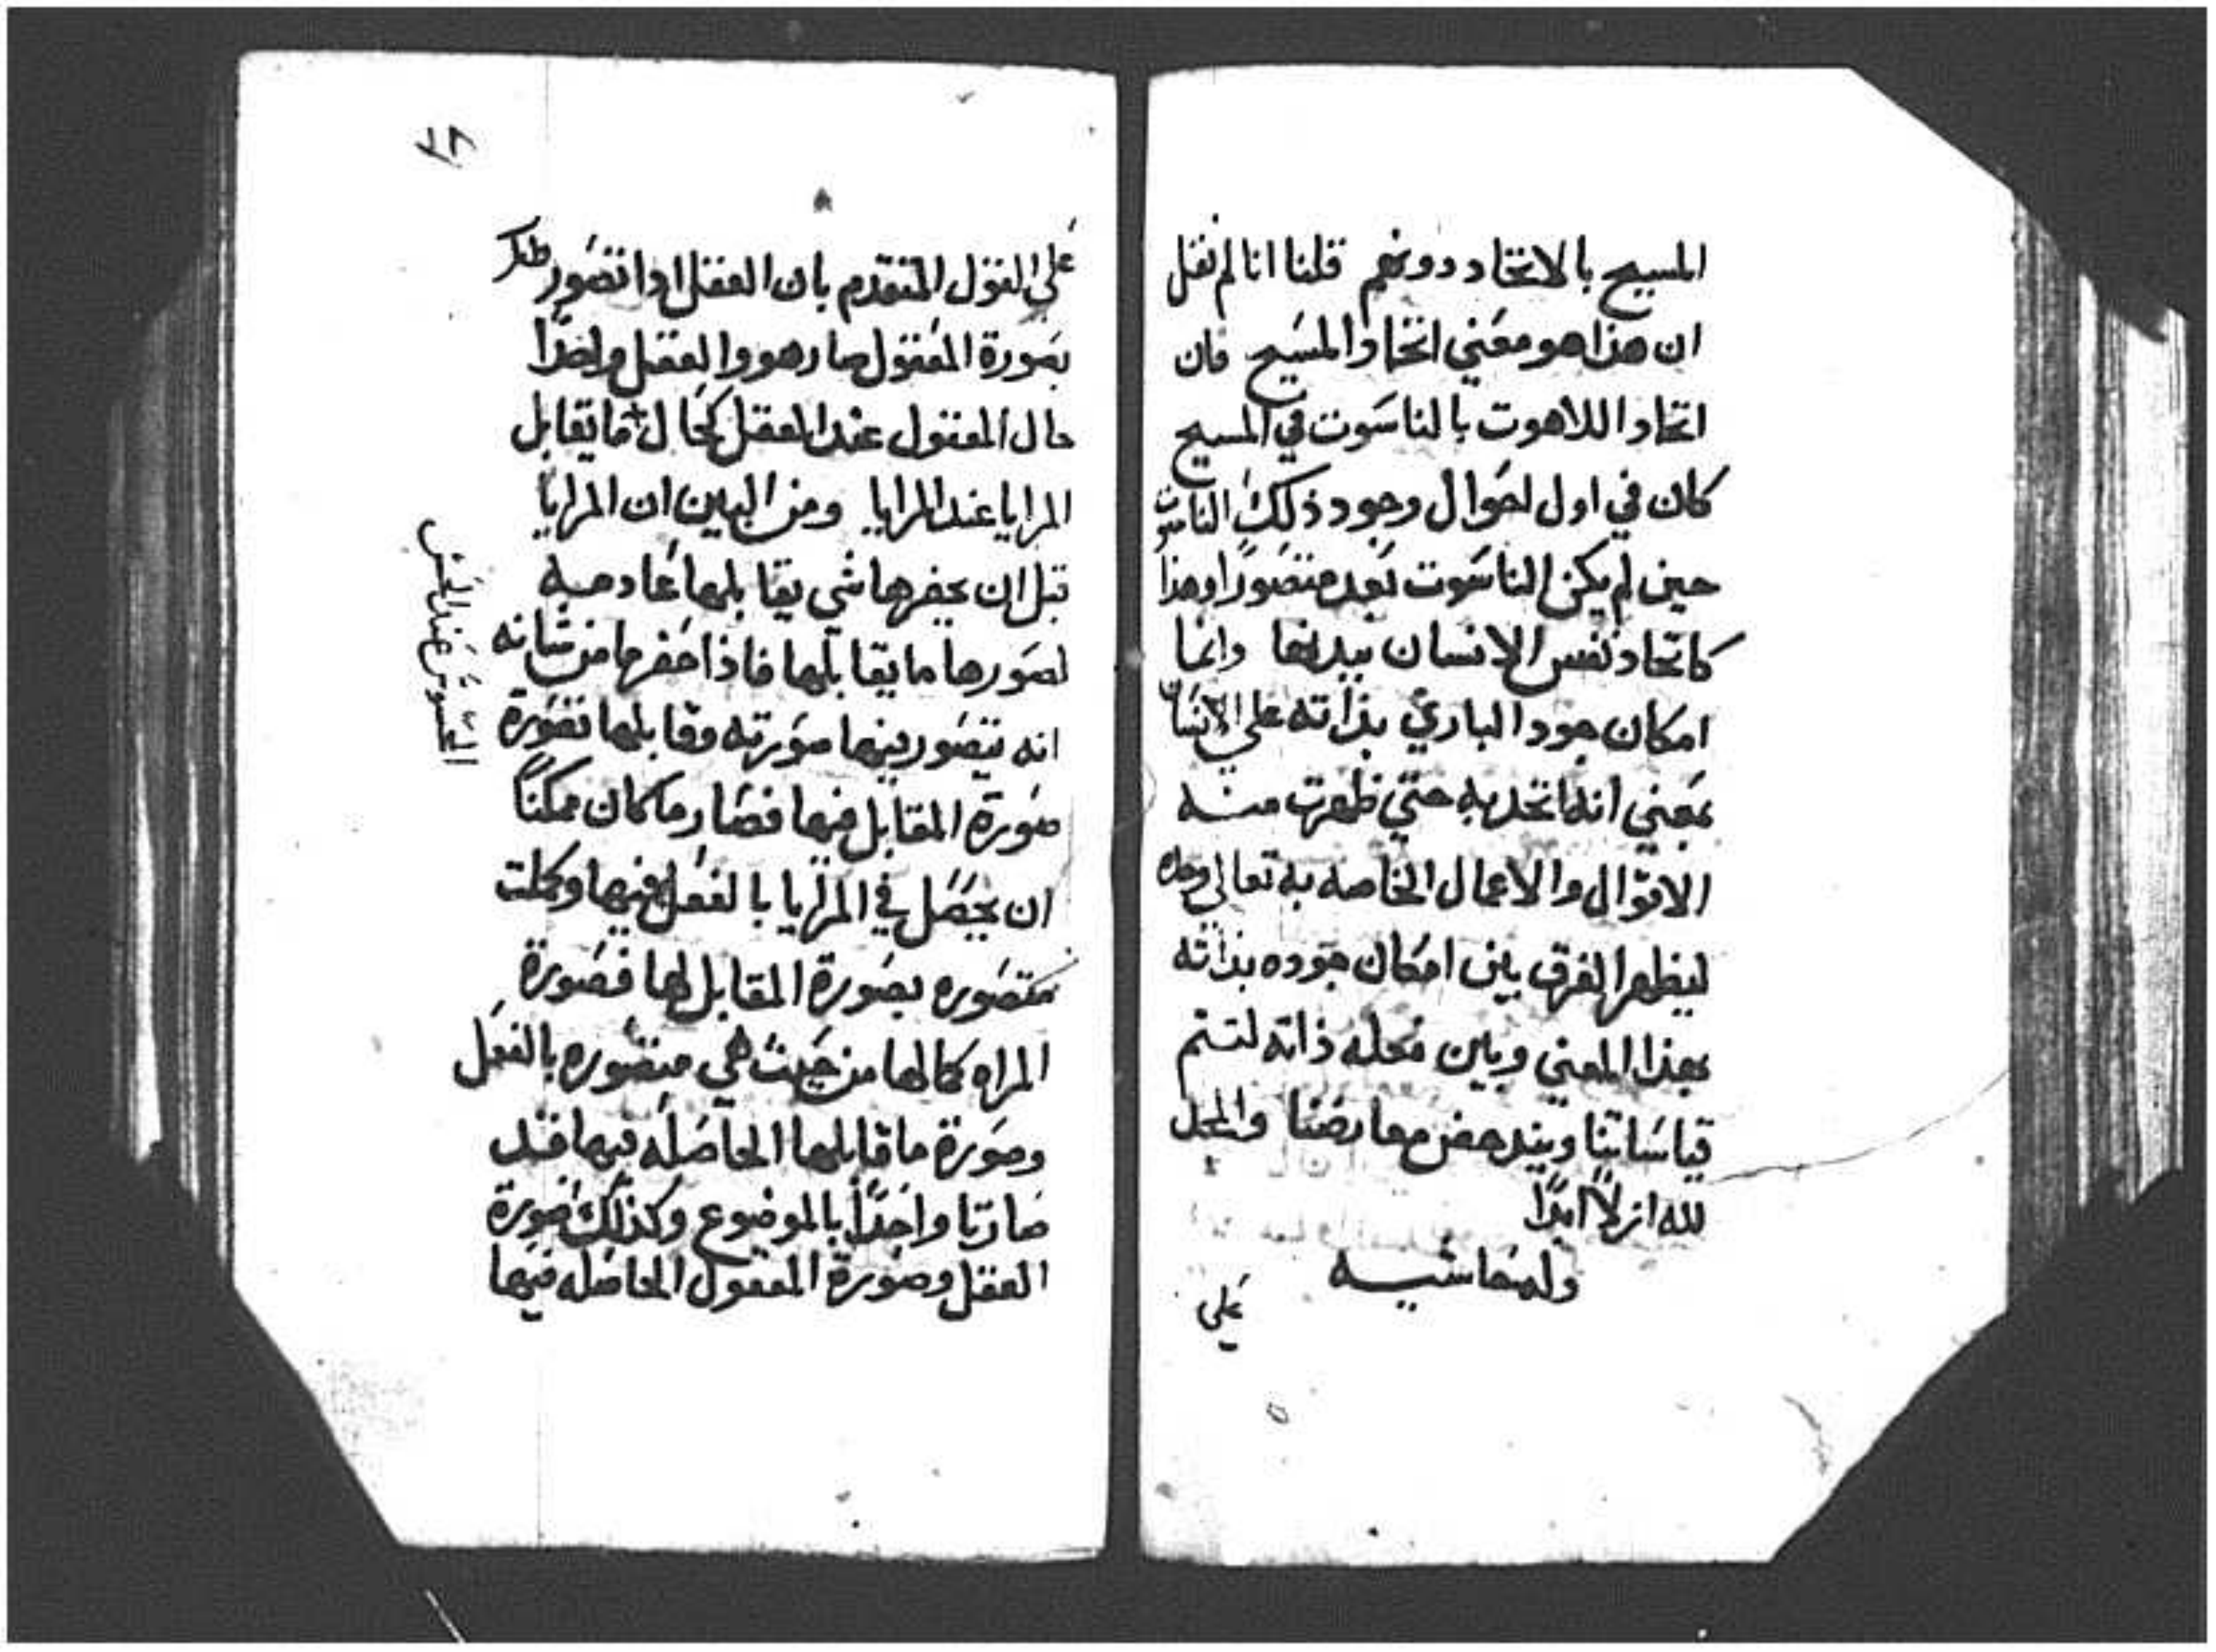 المسيح بالاتحاد دونهم قلنا انا لم نقل
ان هذا هو معني اتحاد المسيح فان
اتحاد اللاهوت بالناسوت في المسيح
كان في اول احوال وجود ذلك الناسوت
حين لم يكن الناسوت بعد متصورا وهذا
كاتحاد نفس الانسان ببدنها وانما
امكان جود الباري بذاته علي الانسان
بمعني انه اتحد به حتي ظهرت منه
الاقوال والاعمال الخاصه به تعالي وحده
ليظهر الفرق بين امكان جوده بذاته
بهذا المعني وبين محله ذاته لتتم
قياساتنا ويندحض معارضنا والمجد
لله ازلاً ابدًا
وله حاشيه
علي
علي القول المتقدم بان العقل اذا تصور
بصورة المعقول صار هو والعقل واحدًا
حال المعقول عند العقل كحال ما يقابل
المرايا عند المرايا ومن البين ان المرايا
قبل ان يحضرها شي يقابلها عادميه
لصورها ما يقابلها فاذا حضرها من شانه
انه يتصور فيها صورته وقابلها تصورة
صورة المقابل فيها فصار ما كان ممكنًا
ان يحصل في المرايا بالفعل فيها وكملت
متصوره بصورة المقابل لها فصورة
المراه كمالها من حيث هي متصوره بالفعل
وصورة ما قابلها الحاصله فيها قد
صارتا واحدًا بالموضوع وكذلك صورة
العقل وصورة المعقول الحاصله فيها